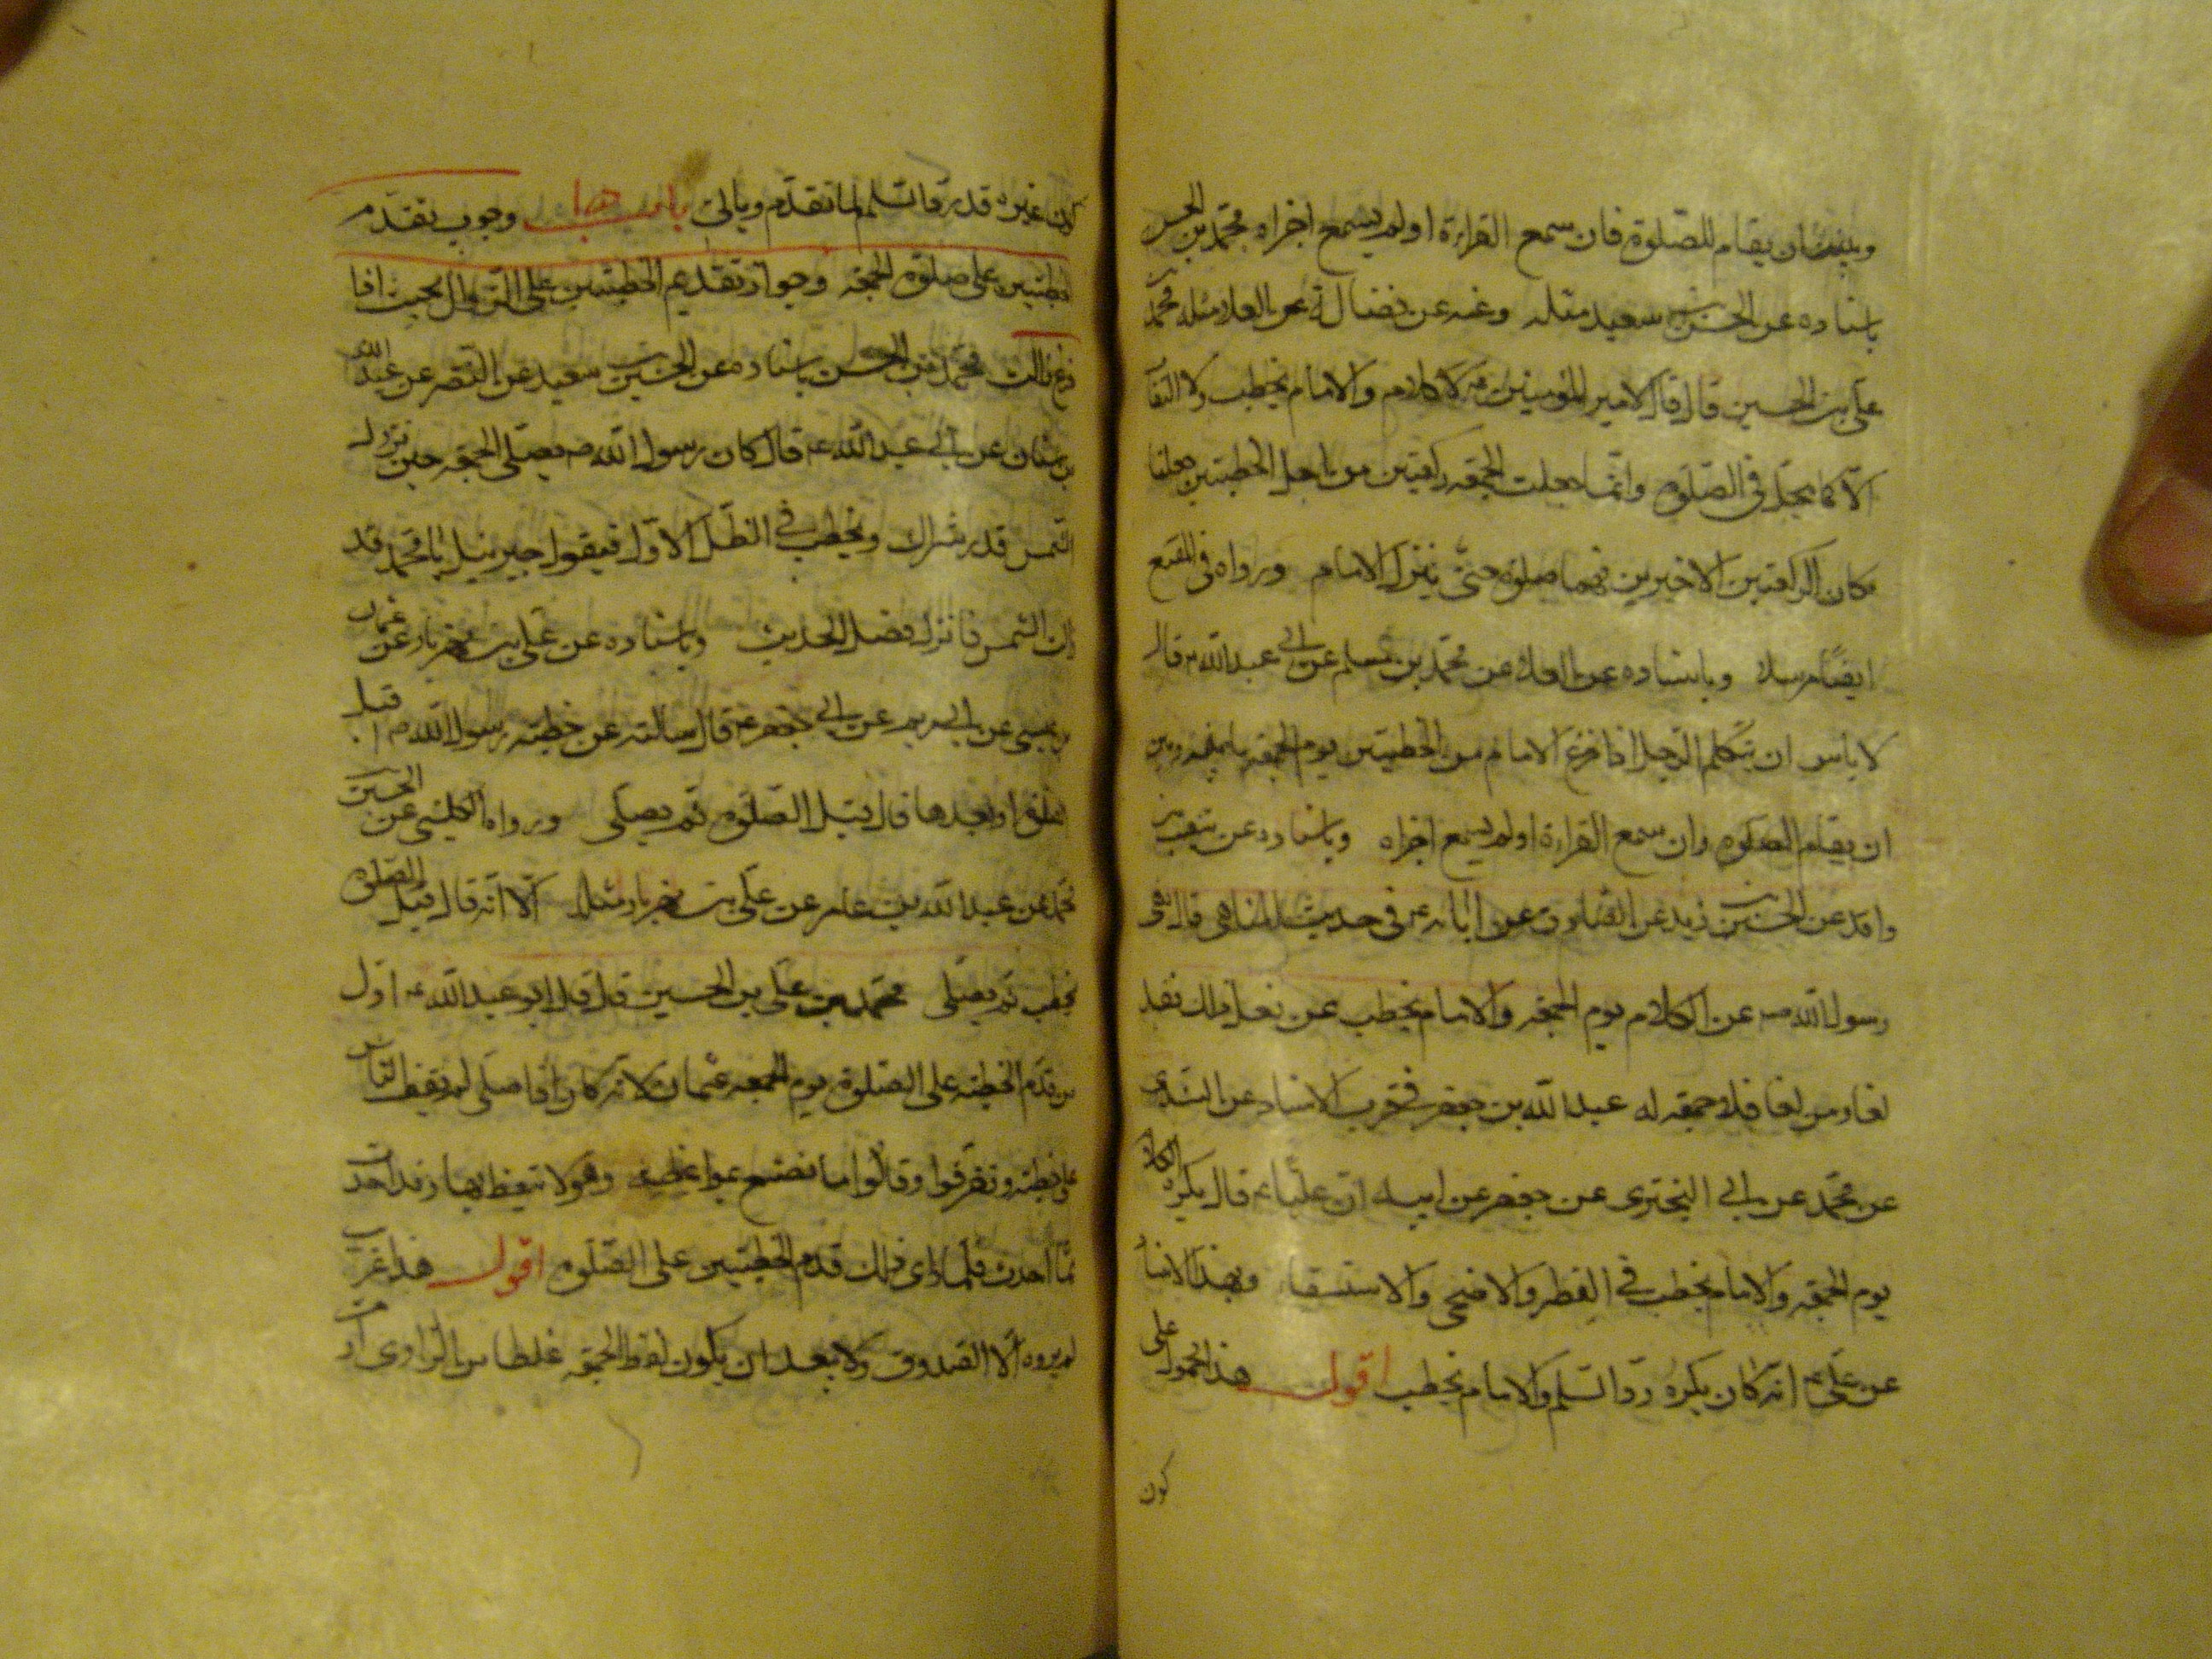 وبين ان يقام للصلوة فان سمع القراءة او لم يسمع اجزاه محمد بن الحسن
باسناده عن الحسين بن سعيد مثله وعنه عن فضالة عن العلا مثله محمد بن
علي بن الحسين قال قال امير المؤمنين ع لا كلام والامام يخطب ولا التفات
الا كما يحل في الصلوة وانما جعلت الجمعه ركعتين من اجل الخطبتين جعلتا
مكان الركعتين الاخيرتين فهما صلوة حتى ينزل الامام ورواه في المقنع
ايضا مرسلا وباسناده عن العلا عن محمد بن مسلم عن ابي عبد الله ع قال
لا باس ان يتكلم الرجل اذا فرغ الامام من الخطبتين يوم الجمعه ما بينه وبين
ان يقام الصلوة وان سمع القراءة او لم يسمع اجزاه وباسناده عن شعيب بن
واقد عن الحسين بن زيد عن الصادق عن ابائه ع في حديث المناهي قال نهى
رسول الله ص عن الكلام يوم الجمعه والامام يخطب فمن فعل ذلك فقد
لغا ومن لغا فلا جمعه له عبد الله بن جعفر في قرب الاسناد عن السندي بن
عن محمد عن ابي البختري عن جعفر عن ابيه ان عليا ع قال يكره الكلام
يوم الجمعه والامام يخطب في الفطر والاضحى والاستسقاء وبهذا الاسناد
عن علي ع انه كان يكره رد السلم والامام يخطب اقول هذا محمول على
كون
كون غيره قد رد السلم لما تقدم وياتي باب وجوب تقدم
الخطبتين على صلوة الجمعه وجواز تقديم الخطبتين على الزوال بحيث اذا
فرغ زالت محمد بن الحسن باسناده عن الحسين بن سعيد عن النضر عن عبد الله
بن سنان عن ابي عبد الله ع قال كان رسول الله ص يصلي الجمعه حين تزول
الشمس قدر شراك ويخطب في الظل الاول فيقول جبرئيل يا محمد قد
زالت الشمس فانزل فصل الحديث وباسناده عن علي بن مهزيار عن عثمان
بن عيسى عن ابي مريم عن ابي جعفر ع قال سالته عن خطبة رسول الله ص ا قبل
الصلوة او بعدها فقال قبل الصلوة ثم يصلي ورواه الكليني عن الحسين بن
محمد عن عبد الله بن عامر عن علي بن مهزيار مثله الا انه قال قبل الصلوة
يخطب ثم يصلي محمد بن علي بن الحسين قال قال ابو عبد الله ع اول
من قدم الخطبة على الصلوة يوم الجمعه عثمان لانه كان اذا صلى لم يقف الناس
على خطبته وتفرقوا وقالوا ما نصنع بمواعظه وهو لا يتعظ بها وقد احدث
ما احدث فلما راى ذلك قدم الخطبتين على الصلوة اقول هذا غريب
لم يروه الا الصدوق ولا يبعد ان يكون لفظ الجمعه غلطا من الراوي او من